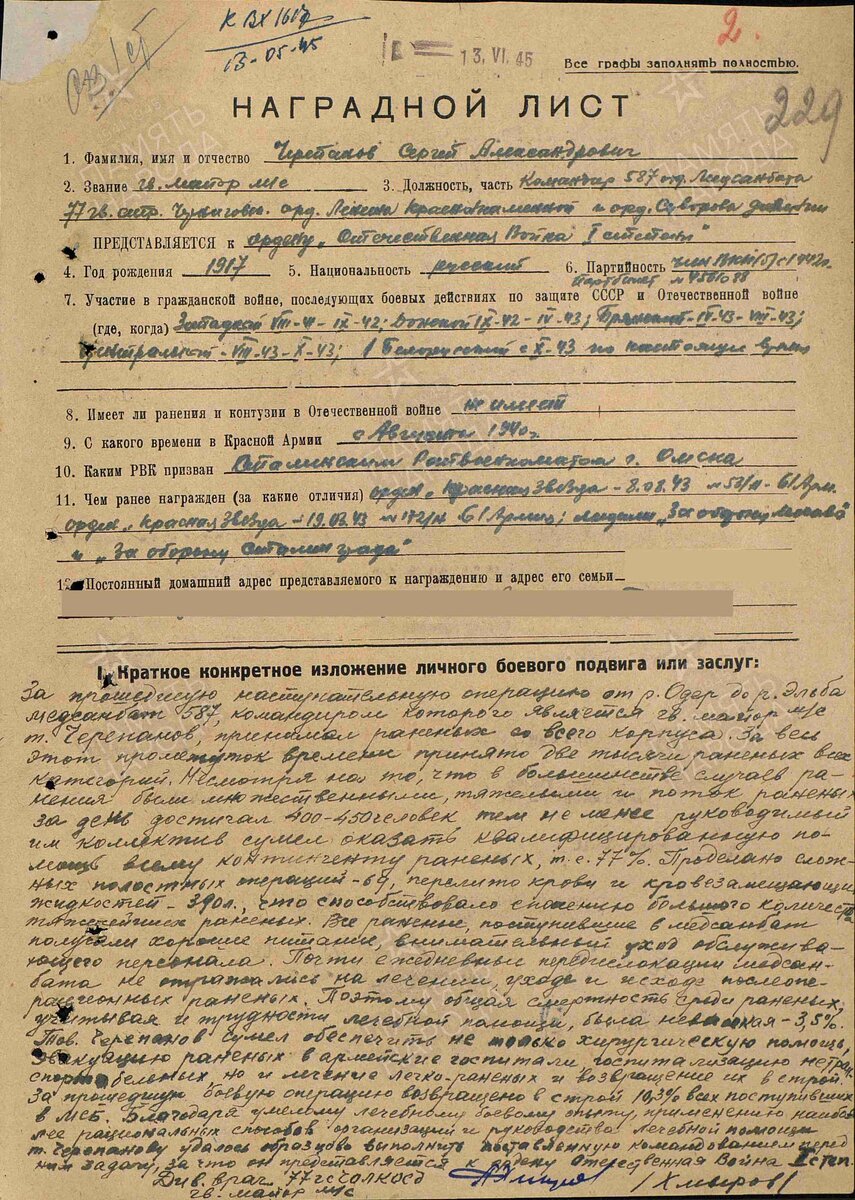 К ВХ 1617
13-05-45
13. VI. 45
2.
Все графы заполнять полностью.
229
НАГРАДНОЙ ЛИСТ
1. Фамилия, имя и отчество Черепанов Сергей Александрович
2. Звание гв. майор м/с 3. Должность, часть Командир 587 отд. Медсанбата
77 гв. стр. Черниговск. орд. Ленина Краснознаменной и орд. Суворова дивизии
ПРЕДСТАВЛЯЕТСЯ к ордену „Отечественная Война I степени"
4. Год рождения 1917 5. Национальность русский 6. Партийность член ВКП(б) с 1942г.
партбилет №
7. Участие в гражданской войне, последующих боевых действиях по защите СССР и Отечественной войне
(где, когда) Западной IX-42; Донской IX-42 - IV-43; IV-43 - VII-43;
Центральной - VII-43 - X-43; I Белорусский с X-43 по настоящее время
8. Имеет ли ранения и контузии в Отечественной войне не имеет
9. С какого времени в Красной Армии с Августа 1940г.
10. Каким РВК призван Сталинским Райвоенкоматом г. Омска
11. Чем ранее награжден (за какие отличия) орден „Красная Звезда - 8.08.43 №52/н - 61 Арм.
орден „Красная Звезда - 19.03.43 №172/н 61 Армии; медали „За оборону Москвы"
и „За оборону Сталинграда"
12. Постоянный домашний адрес представляемого к награждению и адрес его семьи
I. Краткое конкретное изложение личного боевого подвига или заслуг:
За прошедшую наступательную операцию от р. Одер до р. Эльба
медсанбат 587, командиром которого является гв. майор м/с
т. Черепанов, принимал раненых со всего корпуса. За весь
этот промежуток времени принято две тысячи раненых всех
категорий. Несмотря на то, что в большинстве случаев ра-
нения были множественными, тяжелыми и поток раненых
за день достигал 400-450 человек тем не менее руководимый
им коллектив сумел оказать квалифицированную по-
мощь всему контингенту раненых, т.е. 77%. Проделано слож-
ных полостных операций - 69, перелито крови и кровезамещающих
жидкостей - 390л, что способствовало спасению большого количества
тяжелейших раненых. Все раненые, поступившие в медсанбат
получали хорошее питание, внимательный уход обслужива-
ющего персонала. Почти ежедневные передислокации медсан-
бата не отражались на лечении, уходе и исходе послеопе-
рационных раненых. Поэтому общая смертность среди раненых,
учитывая и трудности лечебной помощи, была невысокая - 3,5%.
Тов. Черепанов сумел обеспечить не только хирургическую помощь,
эвакуацию раненых в армейские госпитали, госпитализацию нетран-
спортабельных но и лечение легко-раненых и возвращение их в строй.
За прошедшую боевую операцию возвращено в строй 10,3% всех поступивших
в МСБ. Благодаря умелому лечебному боевому опыту, применению наибо-
лее рациональных способов организации и руководства лечебной помощи
т. Черепанову удалось образцово выполнить поставленную командованием перед
ним задачу, за что он представляется к ордену Отечественная Война II степ.
Див. врач 77 гв
гв. майор м/с /Хмыров/